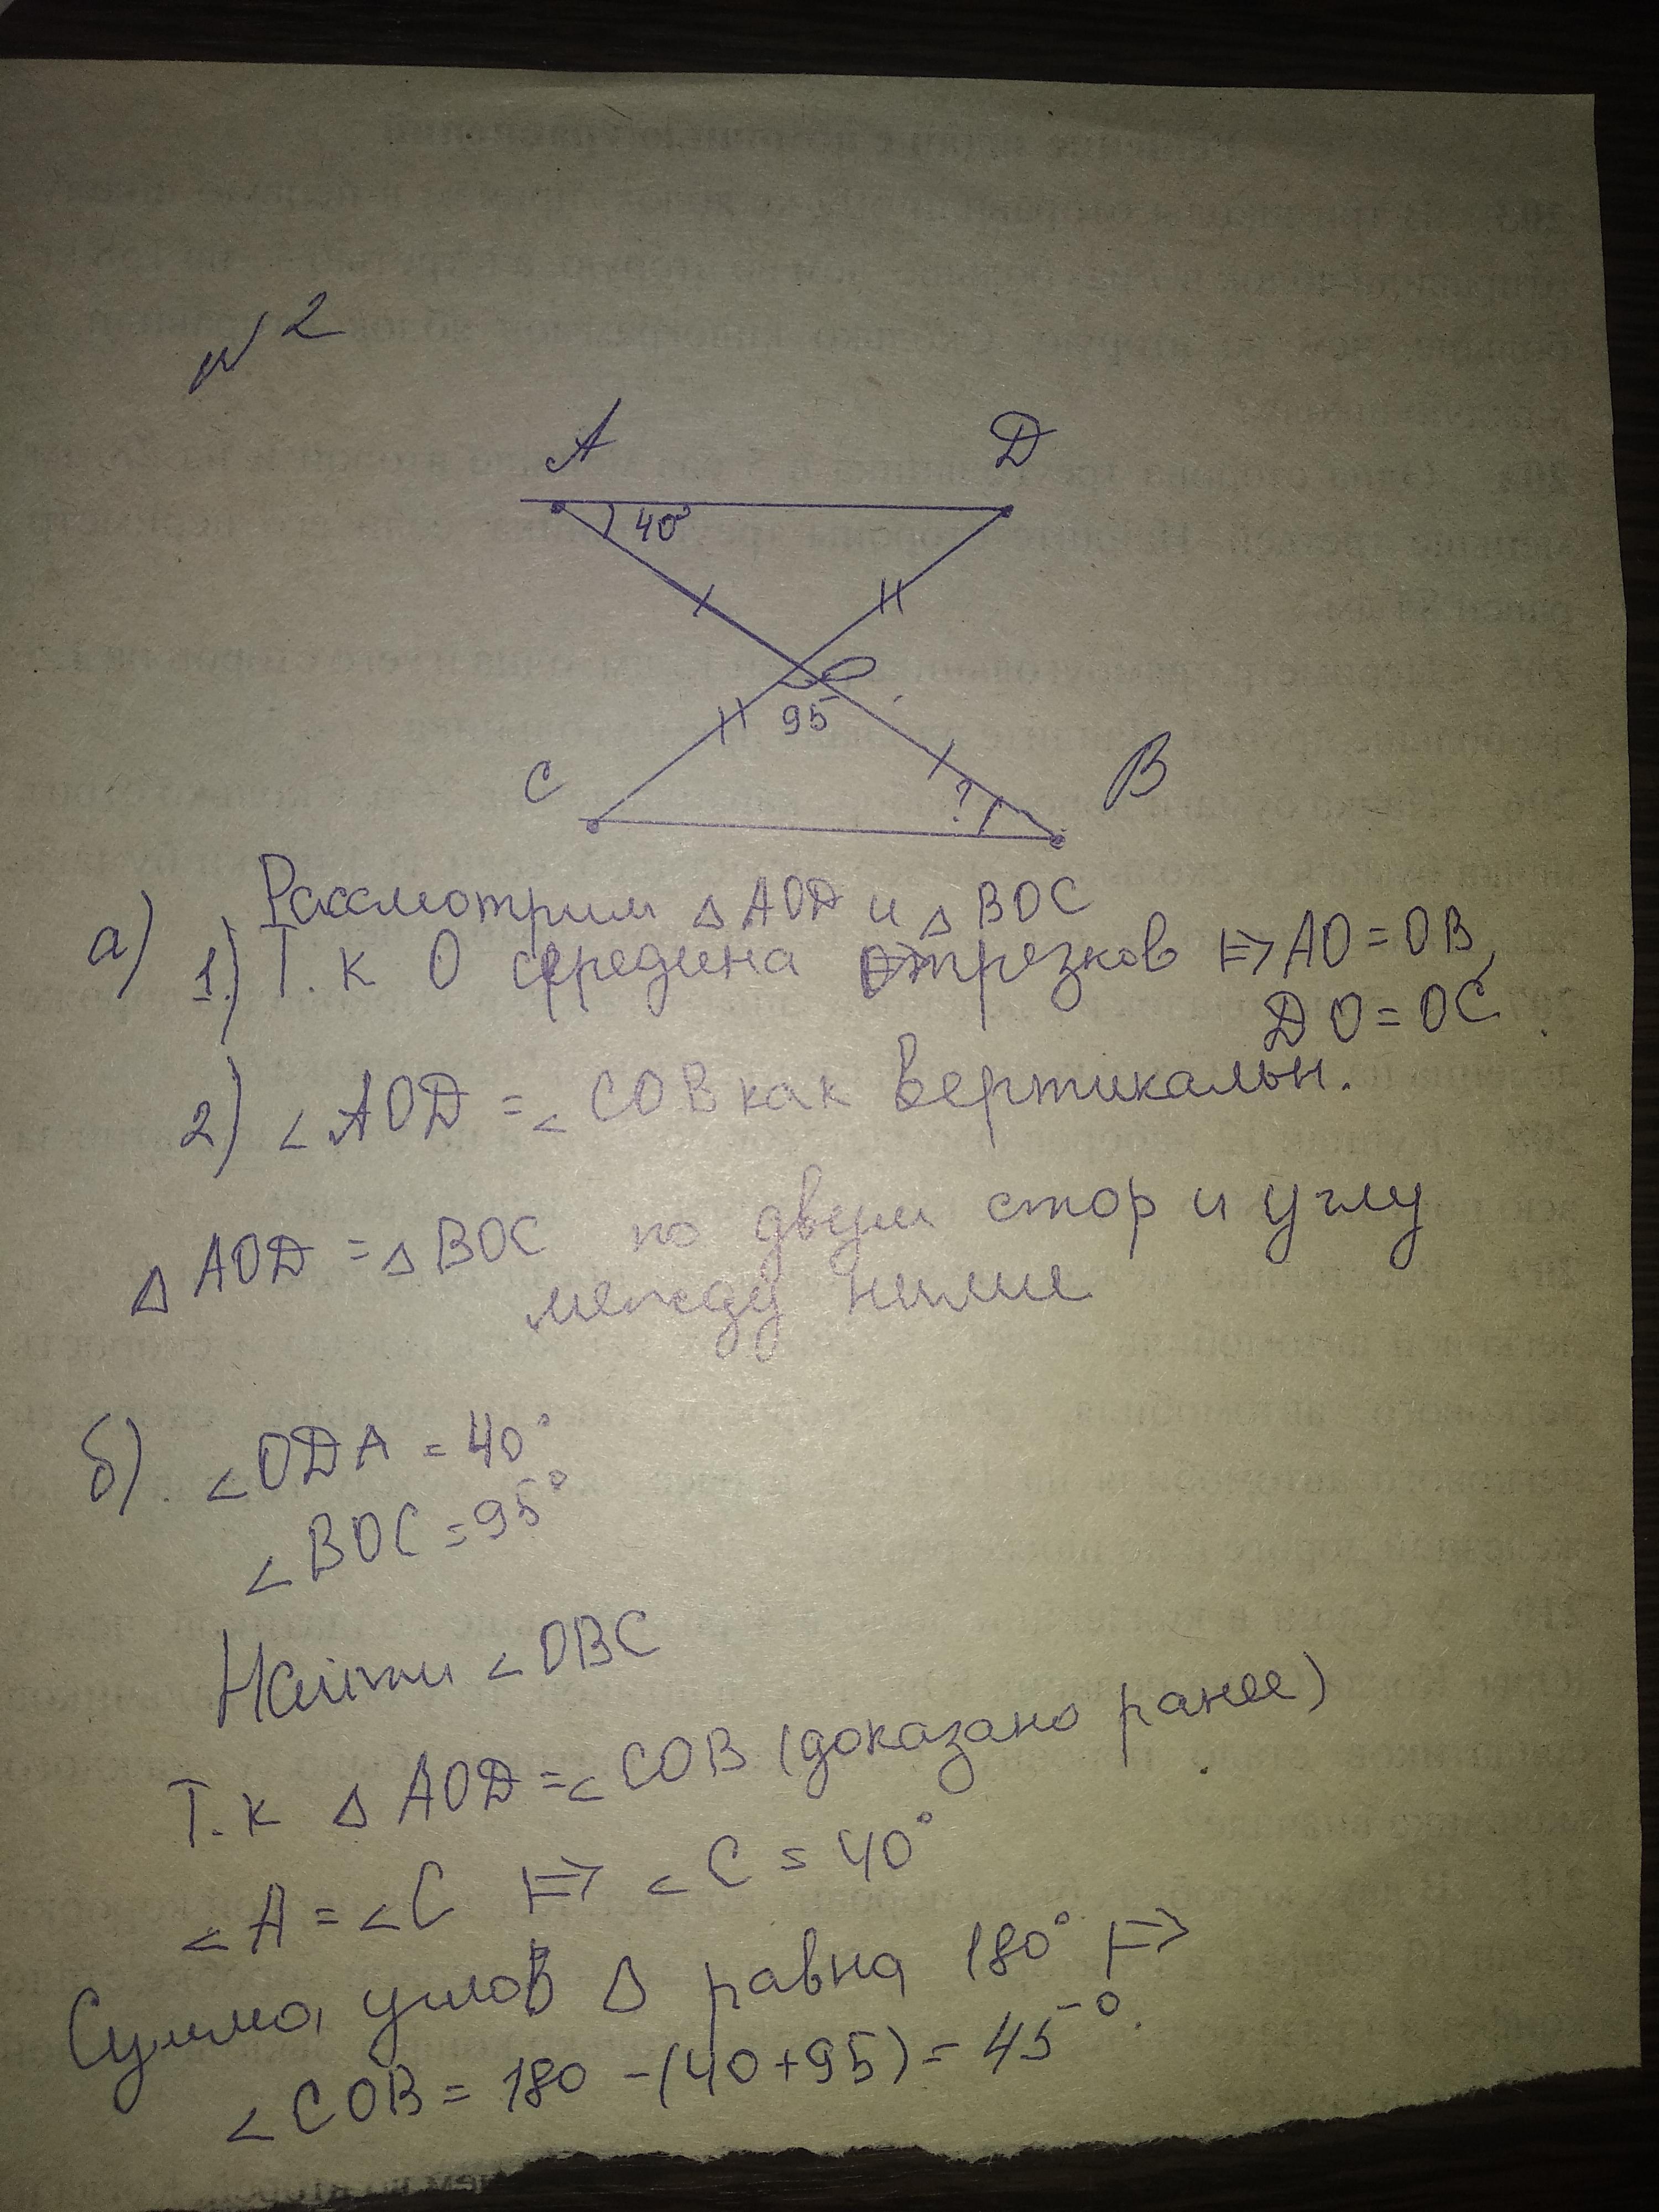 №2
A
D
40°
O
95
C
?
B
а) Рассмотрим △AOD и △BOC
1) Т. к O середина отрезков ⇒ AO = OB,
DO = OC.
2) ∠AOD = ∠COB как вертикальн.
△AOD = △BOC по двум стор и углу
между ними
б). ∠ODA = 40°
∠BOC = 95°
Найти ∠OBC
Т.к △AOD = ∠COB (доказано ранее)
∠A = ∠C ⇒ ∠C = 40°
Сумма углов △ равна 180° ⇒
∠COB = 180 - (40+95) = 45°.